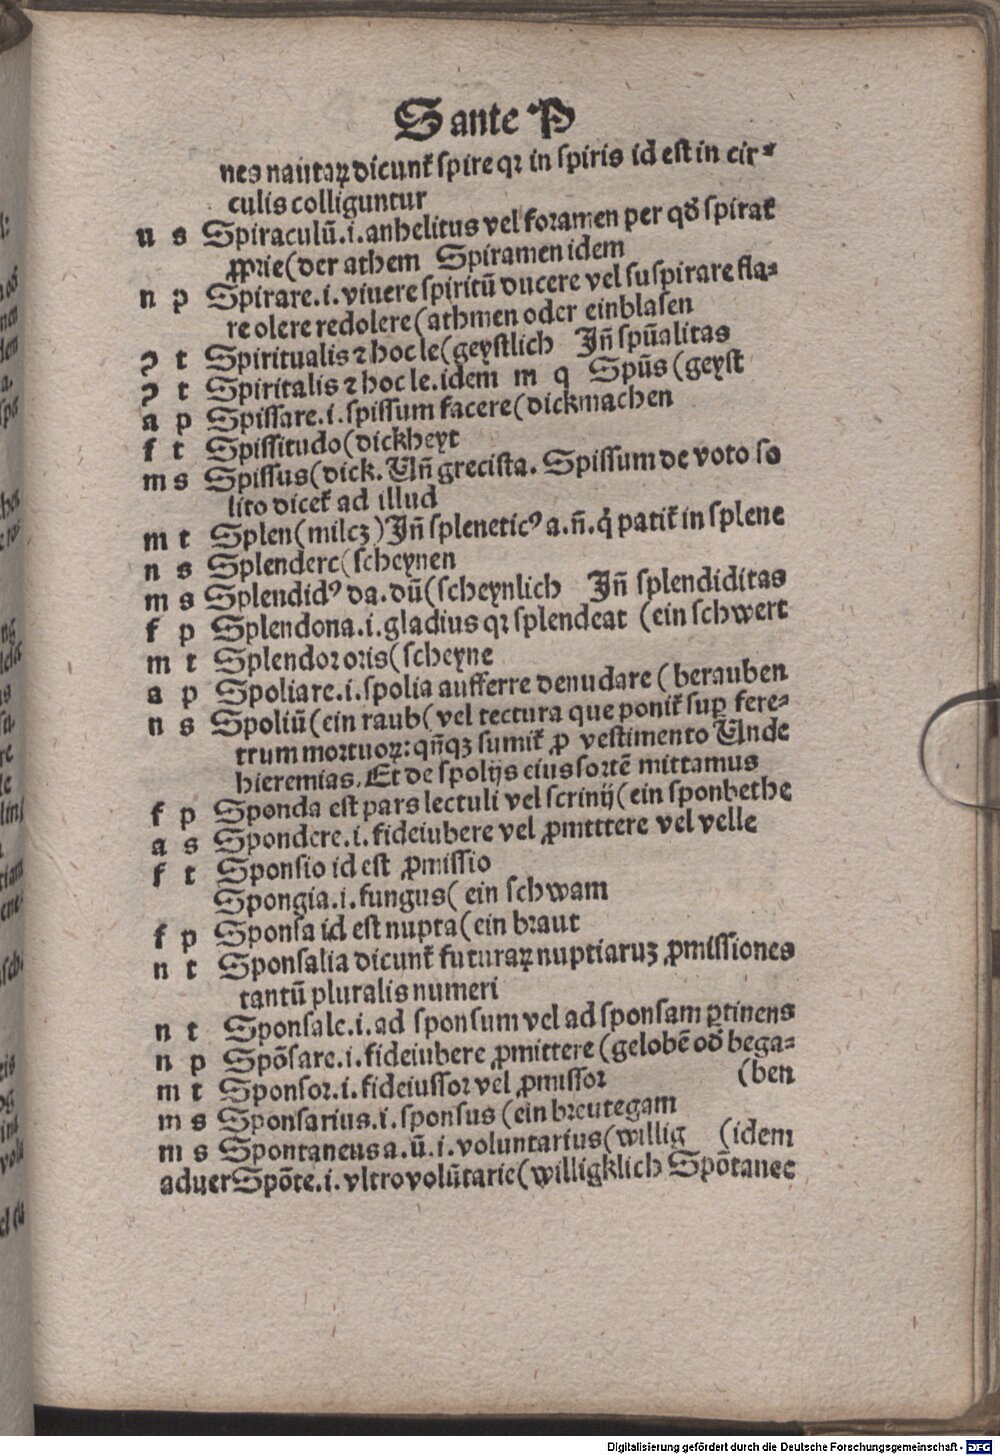 Sante P
nes nautaꝝ dicunt᷑ spire qꝛ in spiris id est in cir⸗
culis colliguntur
n s Spiraculū.i.anhelitus vel foramen per qđ spirat᷑
ꝓprie(der athem Spiramen idem
n p Spirare.i.viuere spiritū ducere vel suspirare fla⸗
re olere redolere(athmen oder einblasen
ꝯ t Spiritualis ⁊ hoc le(geystlich Jñ spūalitas
ꝯ t Spiritalis ⁊ hoc le.idem m q Spūs(geyst
a p Spissare.i.spissum facere(dickmachen
f t Spissitudo(dickheyt
m s Spissus(dick. Uñ grecista. Spissum de voto so
lito dicet᷑ ad illud
m t Splen(milcz)Jñ splenetic⁹ a.ñ.q̇ patit᷑ in splene
n s Splendere(scheynen
m s Splendid⁹ da.dū(scheynlich Jñ splendiditas
f p Splendona.i.gladius qꝛ splendeat (ein schwert
m t Splendor oris(scheyne
a p Spoliare.i.spolia aufferre denudare (berauben
n s Spoliū(ein raub(vel tectura que ponit᷑ suꝑ fere⸗
trum mortuoꝝ:qñqꝫ sumit᷑ ꝓ vestimento Unde
hieremias.Et de spolijs eius sortē mittamus
f p Sponda est pars lectuli vel scrinij(ein sponbethe
a s Spondere.i.fideiubere vel ꝓmittere vel velle
f t Sponsio id est ꝓmissio
Spongia.i.fungus( ein schwam
f p Sponsa id est nupta(ein braut
n t Sponsalia dicunt᷑ futuraꝝ nuptiaruꝫ ꝓmissiones
tantū pluralis numeri
n t Sponsale.i.ad sponsum vel ad sponsam ꝑtinens
n p Spōsare.i.fideiubere ꝓmittere(gelobē ođ bega⸗
m t Sponsor.i.fideiussor vel ꝓmissor (ben
m s Sponsarius.i.sponsus(ein breutegam
m s Spontaneus a.ū.i.voluntarius(willig (idem
aduer Spōte.i.vltro volūtarie(willigklich Spōtanee
Digitalisierung gefördert durch die Deutsche Forschungsgemeinschaft - DFG